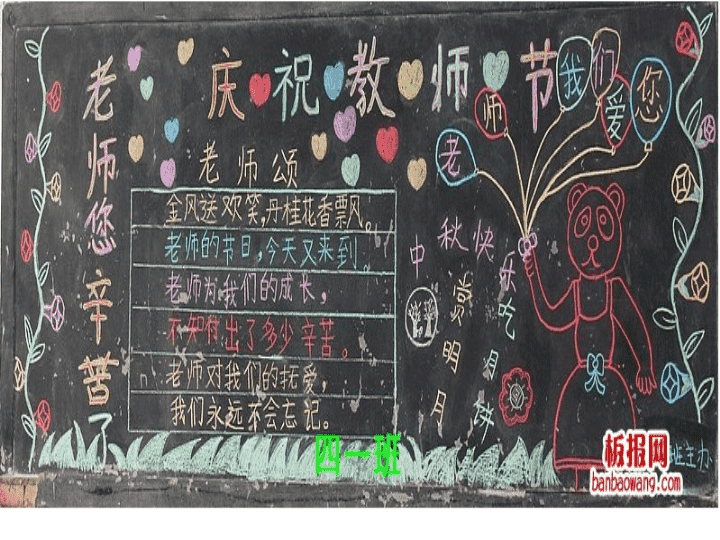 庆祝教师节
老师我们爱您
老师您辛苦了
老师颂
金风送欢笑，丹桂花香飘风。
老师的节日，今天又来到。
老师为我们的成长，
不知付出了多少辛苦。
老师对我们的抚爱，
我们永远不会忘记。
中秋快乐
赏明月
吃月饼
四一班
班主办
板报网
banbaowang.com